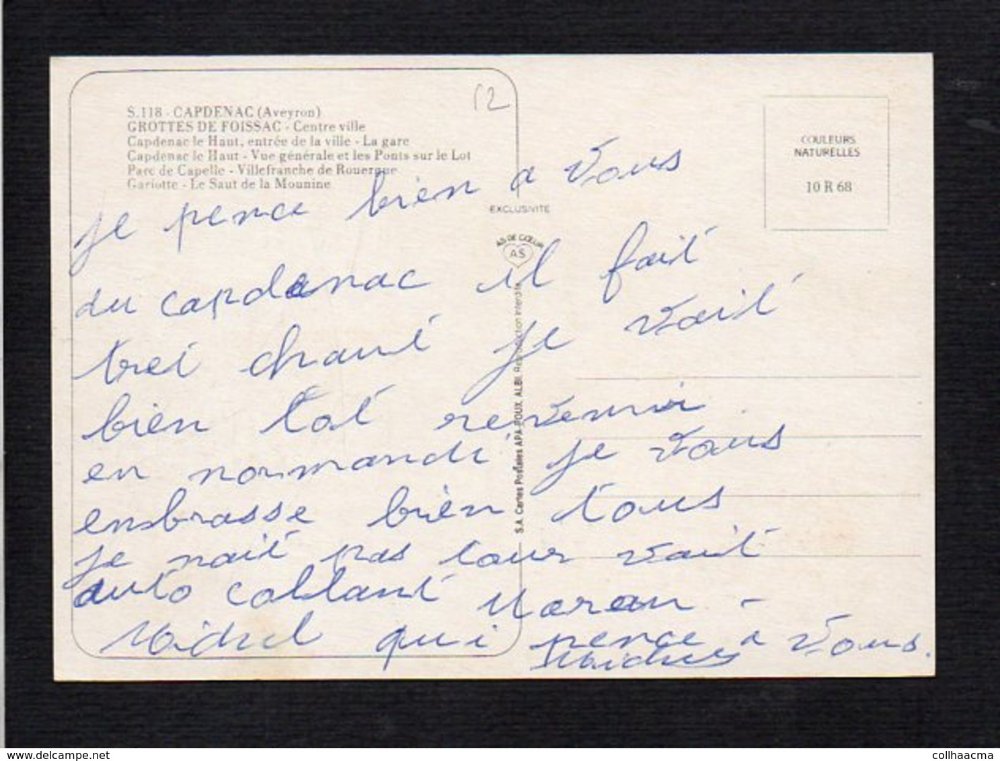 S.118 - CAPDENAC (Aveyron)
GROTTES DE FOISSAC - Centre ville
Capdenac le Haut, entrée de la ville - La gare
Capdenac le Haut - Vue générale et les Ponts sur le Lot
Parc de Capelle - Villefranche de Rouergue
Gariotte - Le Saut de la Mounine
12
COULEURS
NATURELLES
10 R 68
EXCLUSIVITE
AS DE CŒUR
AS
S.A. Cartes Postales APA-POUX, ALBI. Reproduction interdite
je pence bien a vous
du capdenac il fait
trei chaut je vait
bien tot revenir
en normandi je vous
ensbrasse bien tous
je nait pas tour vait
auto collant
Michel qui pence a vous.
collhaacma